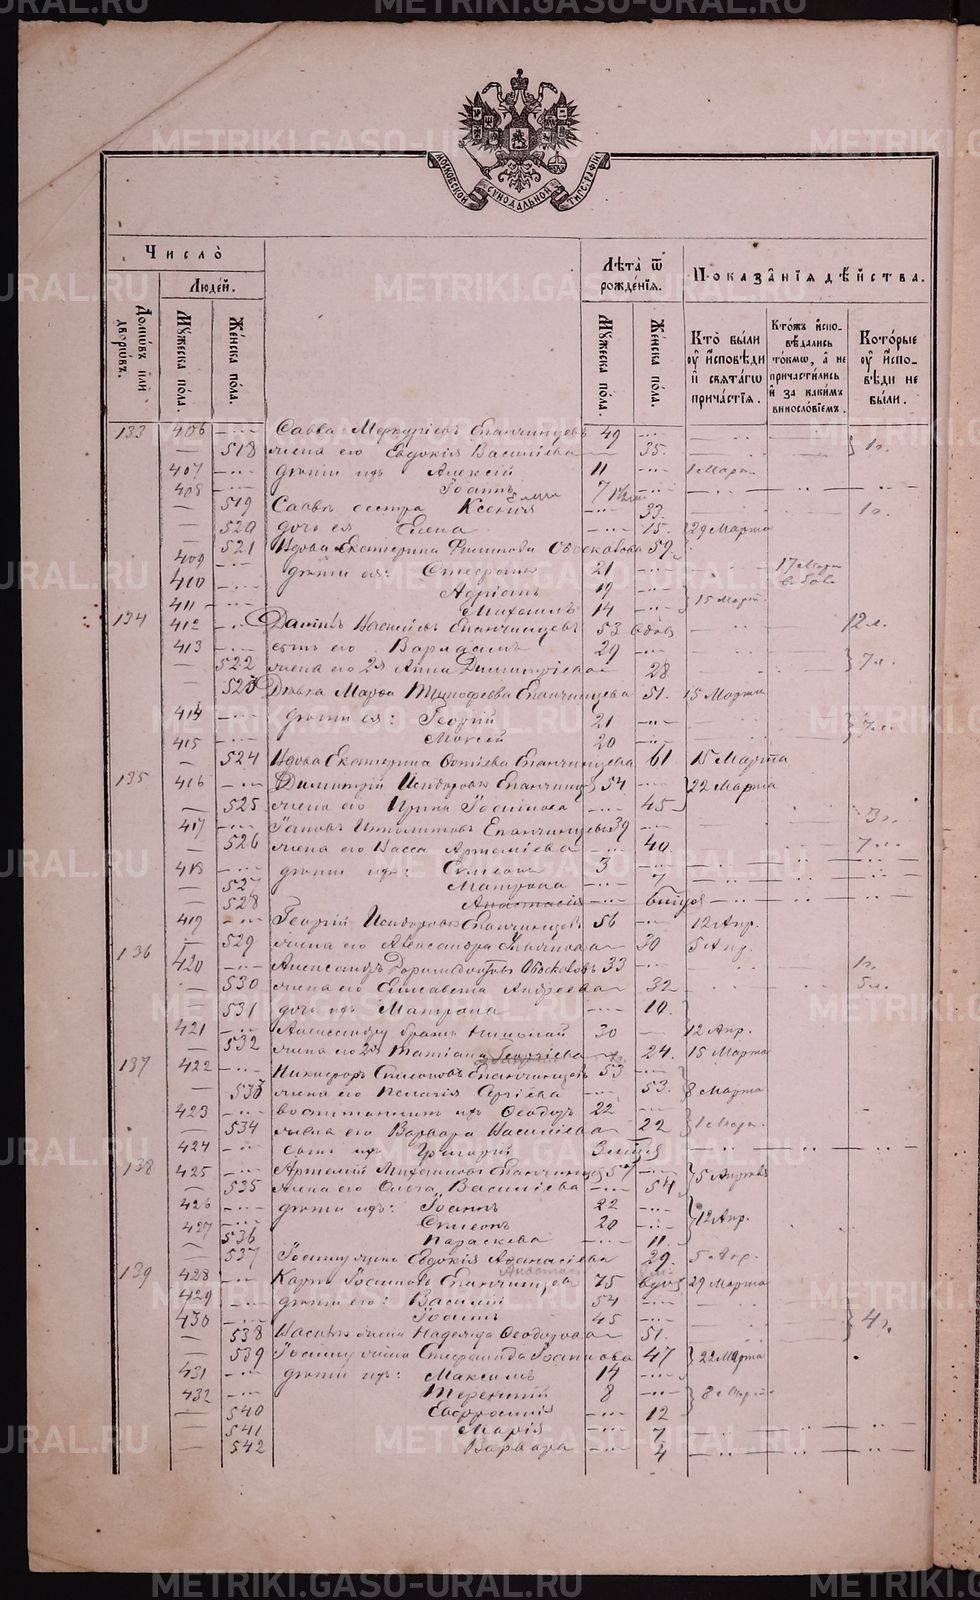 МОСКОВСКОЙ СУНОДАЛЬНОЙ ТИПОГРАФІИ
Число̀
Людей.
Лѣта̀ ѿ рожденїѧ.
Показанїѧ дѣйства.
Домѡвъ и҆лѝ дворѡвъ.
Мꙋжеска пола.
Женска пола.
Мꙋжеска пола.
Женска пола.
Кто̀ бы́ли ᲂу҆ и҆споведи и҆ свѧтагѡ причастїѧ.
Кто́жъ и҆сповѣдались то́кмѡ, а҆ не причастились и҆ за какимъ винословїемъ.
Кото́рые ᲂу҆ и҆споведи не бы́ли.
133 406 Савва Меркуріевъ Епанчинцевъ 49
518 жена его Евдокія Василіева 35. 1 г.
407 дѣти ихъ Алексій 11 1 Марта
408 Іоаннъ 7
519 Саввы сестра Ксенія 33 1 г.
520 дочь ея Елена 15. 29 Марта
521 Вдова Екатерина Обоскалова 52
409 дѣти ея: Стефанъ 21 17 Марта
410 Адріанъ 19
411 Михаилъ 14 15 Март.
134 412 Василіевъ Епанчинцевъ 53 вдов 12 л.
413 сынъ его Варлаамъ 29
522 жена его 2я Анна Димитріева 28 7 л.
523 Дѣвка Марѳа Тимофеева Епанчинцева 51. 15 Марта
414 дѣти ея: Георгій 21
415 Моисей 20
524 Вдова Екатерина Фотіева Епанчинцева 61 15 Марта
135 416 Димитрій Исидоровъ Епанчинц 54 22 Марта
525 жена его Ирина 45
417 Ипполитовъ Епанчинцевъ 39 3 г.
526 жена его Васса Артеміева 40. 7 л.
418 дѣти ихъ: Симеонъ 3
527 Матрона 7
528 Анастасія
419 Георгій Исидоровъ Епанчинцевъ 56 12 Апр.
529 жена его Александра 30 5 Апр.
136 420 Александръ Обоскаловъ 33 1 г.
530 жена его Елисавета Андреева 32 5 л.
531 дочь ихъ Матрона 10.
421 Александру братъ Николай 30 12 Апр.
532 жена его 2я Татіана Георгіева 24. 15 Марта
137 422 Никифоръ Симеоновъ Епанчинцевъ 53
533 жена его Пелагія Сергіева 53. 8 Марта
423 воспитанникъ ихъ Ѳеодоръ 22
534 жена его Варвара Василіева 22 1 Март.
424 сынъ ихъ Григорій
138 425 Артемій Епанчинцевъ 57
535 жена его Ольга Василіева 54 5 Апрѣля
426 дѣти ихъ: Іоаннъ 22
427 Симеонъ 20 12 Апр.
536 Параскева 11.
537 Іоанну жена Евдокія Аѳанасіева 29. 5 Апр.
139 428 Карпъ Іоанновъ Епанчинцевъ 75 вдов 29 Марта
429 дѣти его: Василій 54
430 Іоаннъ 45 4 г.
538 Василію жена Надежда Ѳеодорова 51.
539 Іоанну жена Стефанида Іоаннова 47 22 Марта
431 дѣти ихъ: Максимъ 14
432 Терентій 8 8 Марта
540 Евфросинія 12
541 Марія 7
542 Варвара 4
METRIKI.GASO-URAL.RU